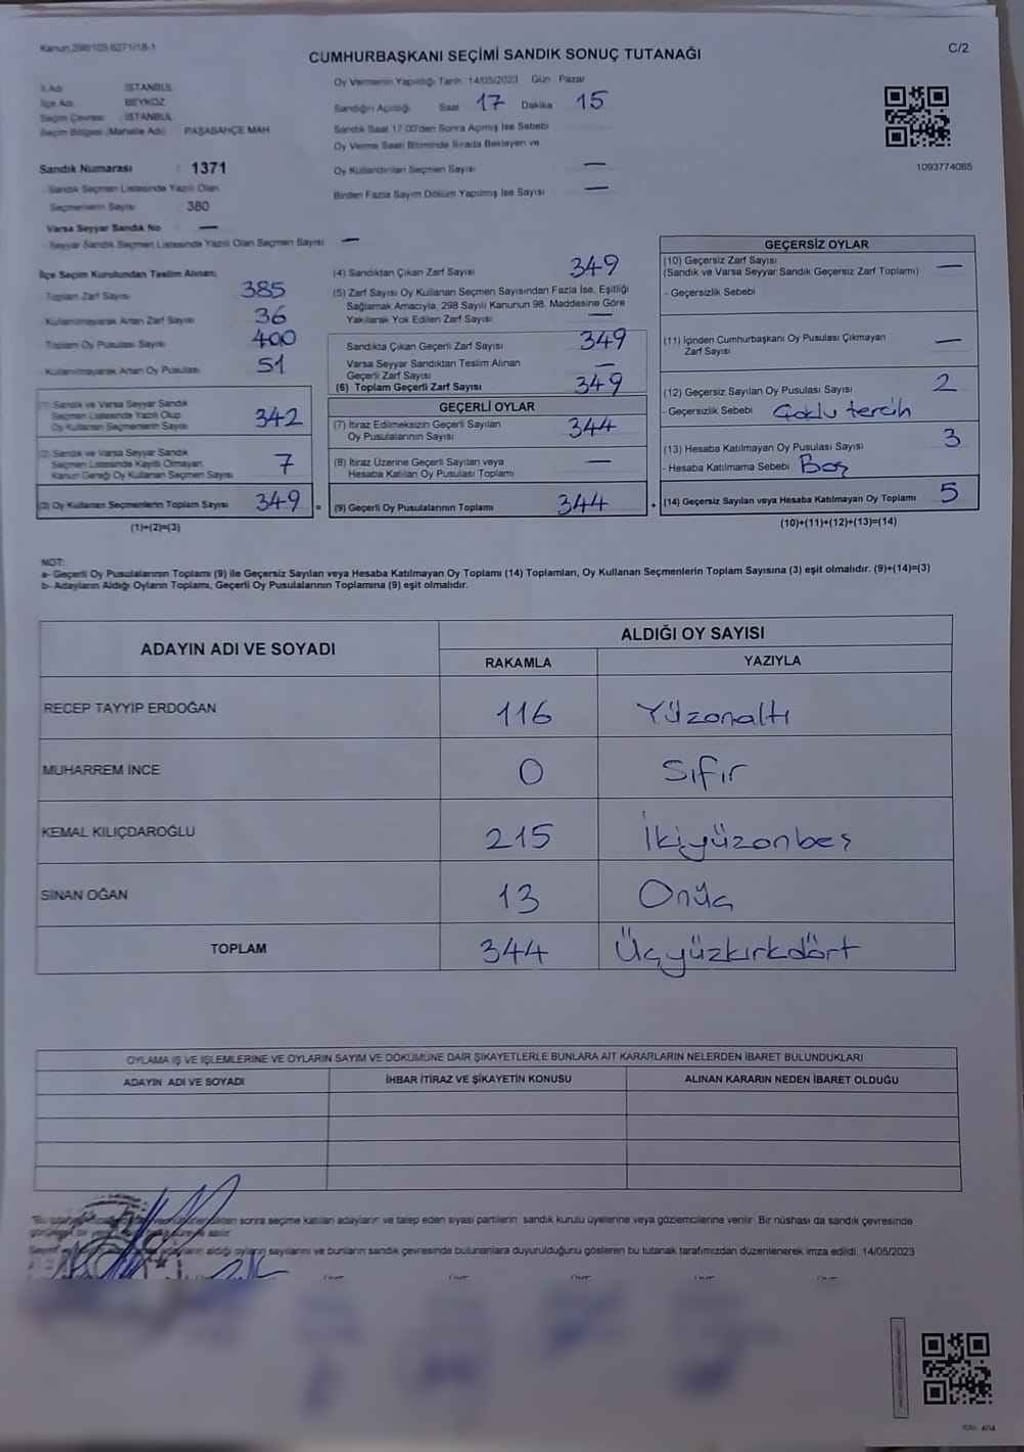 CUMHURBAŞKANI SEÇİMİ SANDIK SONUÇ TUTANAĞI
C/2
İl Adı : İSTANBUL
İlçe Adı : BEYKOZ
Seçim Çevresi : İSTANBUL
Seçim Bölgesi (Mahalle Adı) : PAŞABAHÇE MAH
Sandık Numarası : 1371
Sandık Seçmen Listesinde Yazılı Olan
Seçmenlerin Sayısı : 380
Varsa Seyyar Sandık No —
Seyyar Sandık Seçmen Listesinde Yazılı Olan Seçmen Sayısı —
Oy Vermenin Yapıldığı Tarih : 14/05/2023 Gün : Pazar
Sandığın Açıldığı Saat 17 Dakika 15
Sandık Saat 17:00'den Sonra Açılmış İse Sebebi
Oy Verme Saati Bitiminde Sırada Bekleyen ve
Oy Kullandırılan Seçmen Sayısı —
Birden Fazla Sayım Döküm Yapılmış İse Sayısı —
1093774085
İlçe Seçim Kurulundan Teslim Alınan;
Toplam Zarf Sayısı 385
Kullanılmayarak Artan Zarf Sayısı 36
Toplam Oy Pusulası Sayısı 400
Kullanılmayarak Artan Oy Pusulası 51
(1) Sandık ve Varsa Seyyar Sandık
Seçmen Listesinde Yazılı Olup
Oy Kullanan Seçmenlerin Sayısı 342
(2) Sandık ve Varsa Seyyar Sandık
Seçmen Listesinde Kayıtlı Olmayan
Kanun Gereği Oy Kullanan Seçmen Sayısı 7
(3) Oy Kullanan Seçmenlerin Toplam Sayısı 349
(1)+(2)=(3)
(4) Sandıktan Çıkan Zarf Sayısı 349
(5) Zarf Sayısı Oy Kullanan Seçmen Sayısından Fazla İse, Eşitliği
Sağlamak Amacıyla, 298 Sayılı Kanunun 98. Maddesine Göre
Yakılarak Yok Edilen Zarf Sayısı —
Sandıkta Çıkan Geçerli Zarf Sayısı 349
Varsa Seyyar Sandıktan Teslim Alınan
Geçerli Zarf Sayısı —
(6) Toplam Geçerli Zarf Sayısı 349
GEÇERLİ OYLAR
(7) İtiraz Edilmeksizin Geçerli Sayılan
Oy Pusulalarının Sayısı 344
(8) İtiraz Üzerine Geçerli Sayılan veya
Hesaba Katılan Oy Pusulası Toplamı —
(9) Geçerli Oy Pusulalarının Toplamı 344
GEÇERSİZ OYLAR
(10) Geçersiz Zarf Sayısı —
(Sandık ve Varsa Seyyar Sandık Geçersiz Zarf Toplamı)
- Geçersizlik Sebebi
(11) İçinden Cumhurbaşkanı Oy Pusulası Çıkmayan
Zarf Sayısı —
(12) Geçersiz Sayılan Oy Pusulası Sayısı 2
- Geçersizlik Sebebi Çoklu tercih
(13) Hesaba Katılmayan Oy Pusulası Sayısı 3
- Hesaba Katılmama Sebebi Boş
(14) Geçersiz Sayılan veya Hesaba Katılmayan Oy Toplamı 5
(10)+(11)+(12)+(13)=(14)
NOT:
a- Geçerli Oy Pusulalarının Toplamı (9) ile Geçersiz Sayılan veya Hesaba Katılmayan Oy Toplamı (14) Toplamları, Oy Kullanan Seçmenlerin Toplam Sayısına (3) eşit olmalıdır. (9)+(14)=(3)
b- Adayların Aldığı Oyların Toplamı, Geçerli Oy Pusulalarının Toplamına (9) eşit olmalıdır.
ADAYIN ADI VE SOYADI
ALDIĞI OY SAYISI
RAKAMLA YAZIYLA
RECEP TAYYİP ERDOĞAN 116 Yüzonaltı
MUHARREM İNCE 0 Sıfır
KEMAL KILIÇDAROĞLU 215 İkiyüzonbeş
SİNAN OĞAN 13 Onüç
TOPLAM 344 Üçyüzkırkdört
OYLAMA İŞ VE İŞLEMLERİNE VE OYLARIN SAYIM VE DÖKÜMÜNE DAİR ŞİKAYETLERLE BUNLARA AİT KARARLARIN NELERDEN İBARET BULUNDUKLARI
ADAYIN ADI VE SOYADI İHBAR İTİRAZ VE ŞİKAYETİN KONUSU ALINAN KARARIN NEDEN İBARET OLDUĞU
sonra seçime katılan adayların ve talep eden siyasi partilerin sandık kurulu üyelerine veya gözlemcilerine verilir. Bir nüshası da sandık çevresinde
adayların aldığı oyların sayılarını ve bunların sandık çevresinde bulunanlara duyurulduğunu gösteren bu tutanak tarafımızdan düzenlenerek imza edildi. 14/05/2023